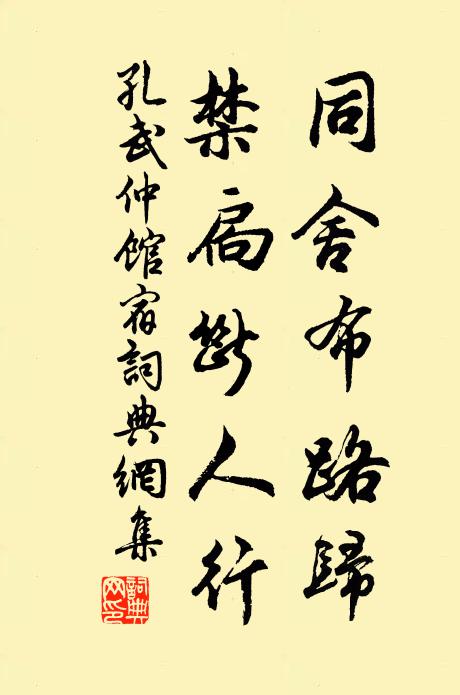 同舍布路歸
禁扃斷人行
孔武仲館宿詞典網集
詞典網印